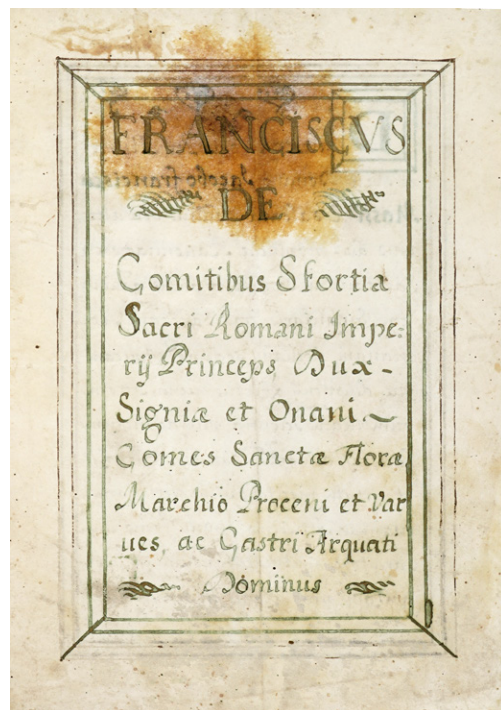 FRANCISCVS
DE
Comitibus Sfortiæ
Sacri Romani Impe:
rij Princeps Dux-
Signiæ et Onani
Comes Sanctæ Floræ
Marchio Proceni et Var
ues, ac Castri Arquati
Dominus